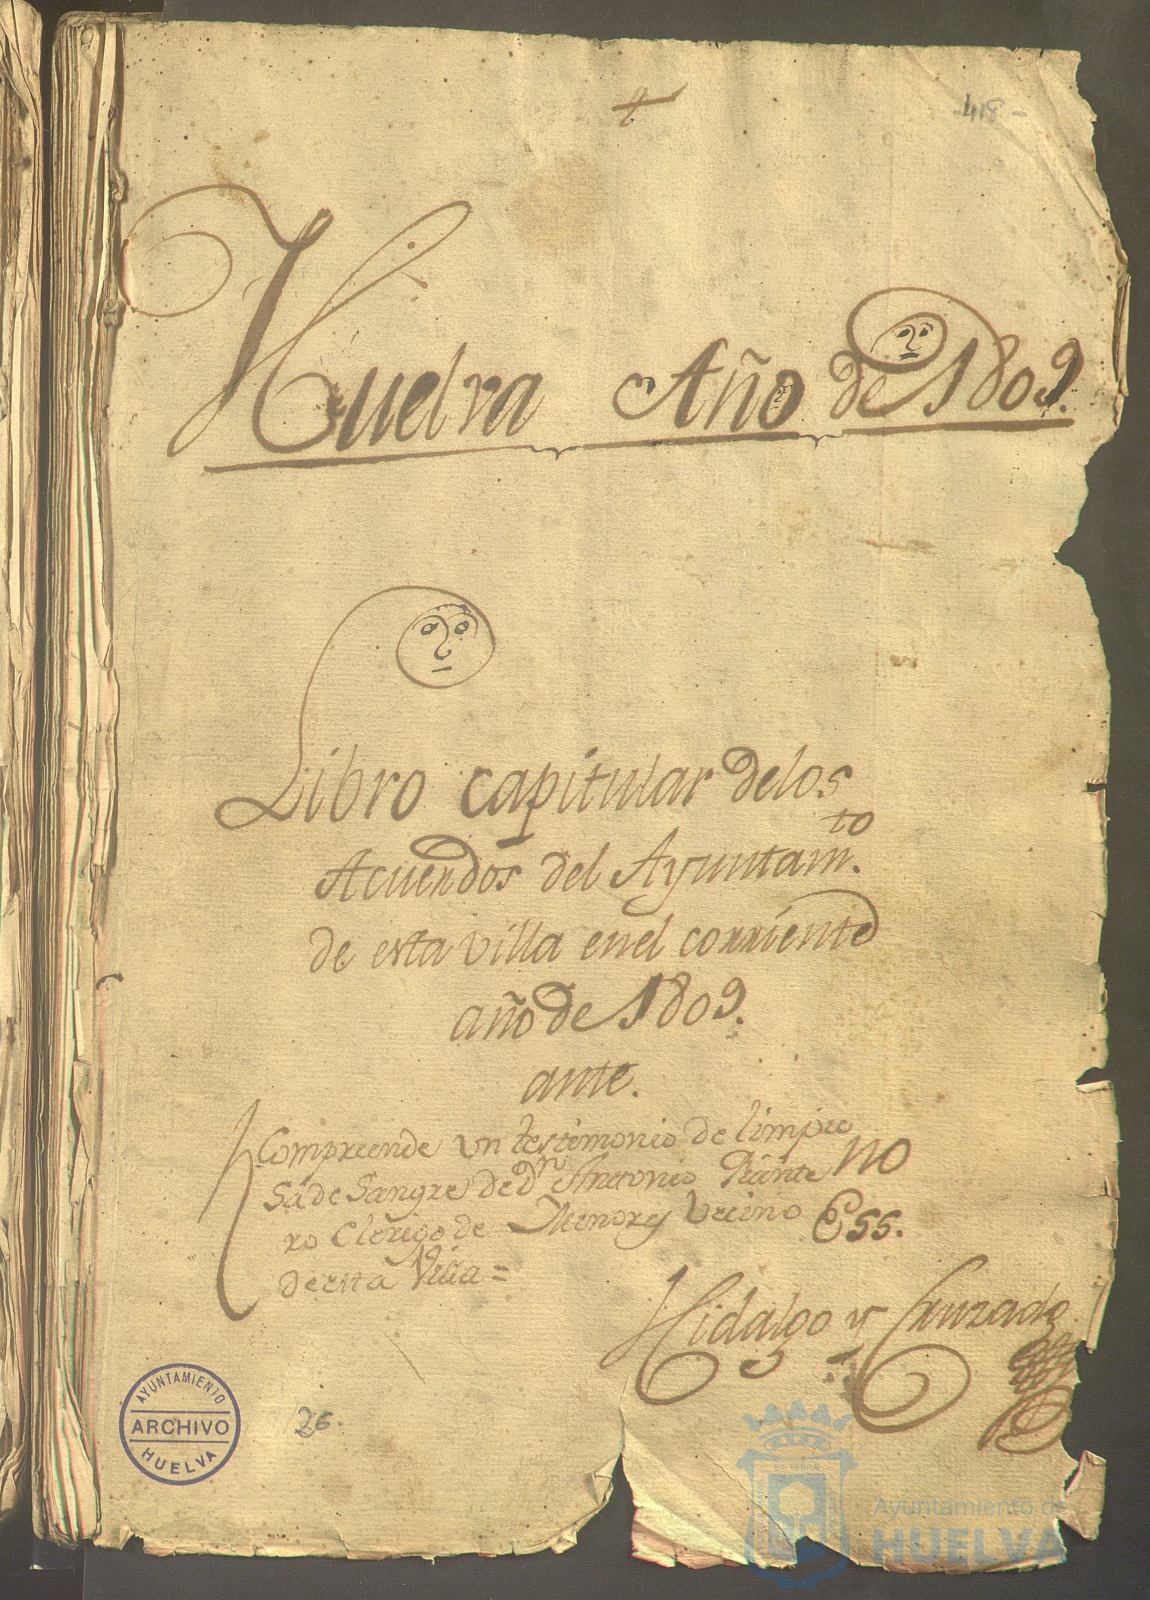 -418-
Huelva Año de 1809.
Libro capitular delos
Acuerdos del Ayuntam.to
de esta villa enel corriente
año de 1809.
ante.
Comprende un testimonio de limpie
sa de Sangre de dn Antonio
ro Clerigo de Menores Vecino
de esta Villa =
no
Ess.
Hidalgo y Cruzado
AYUNTAMIENTO
ARCHIVO
HUELVA
26.
Ayuntamiento de
HUELVA